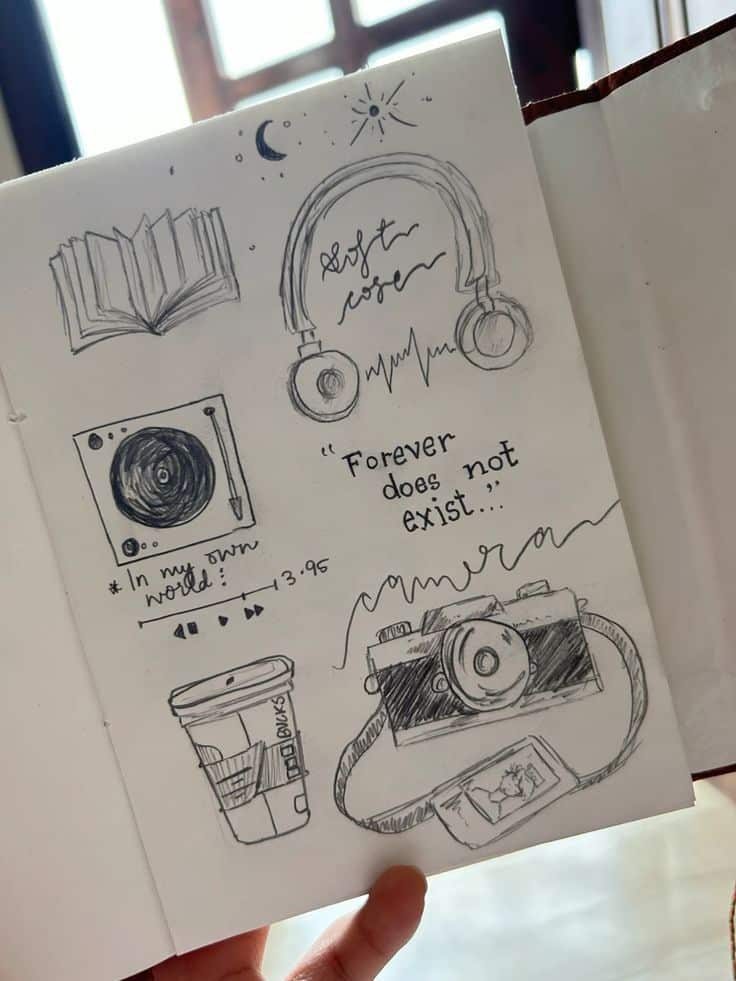 Soft
core
“Forever
does not
exist...”
* In my own
world :
3.95
camera
BUCKS